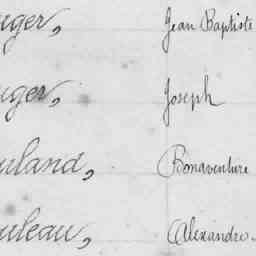 uger, Jean Baptiste
uger, Joseph
uland, Bonaventure
uleau, Alexandre.